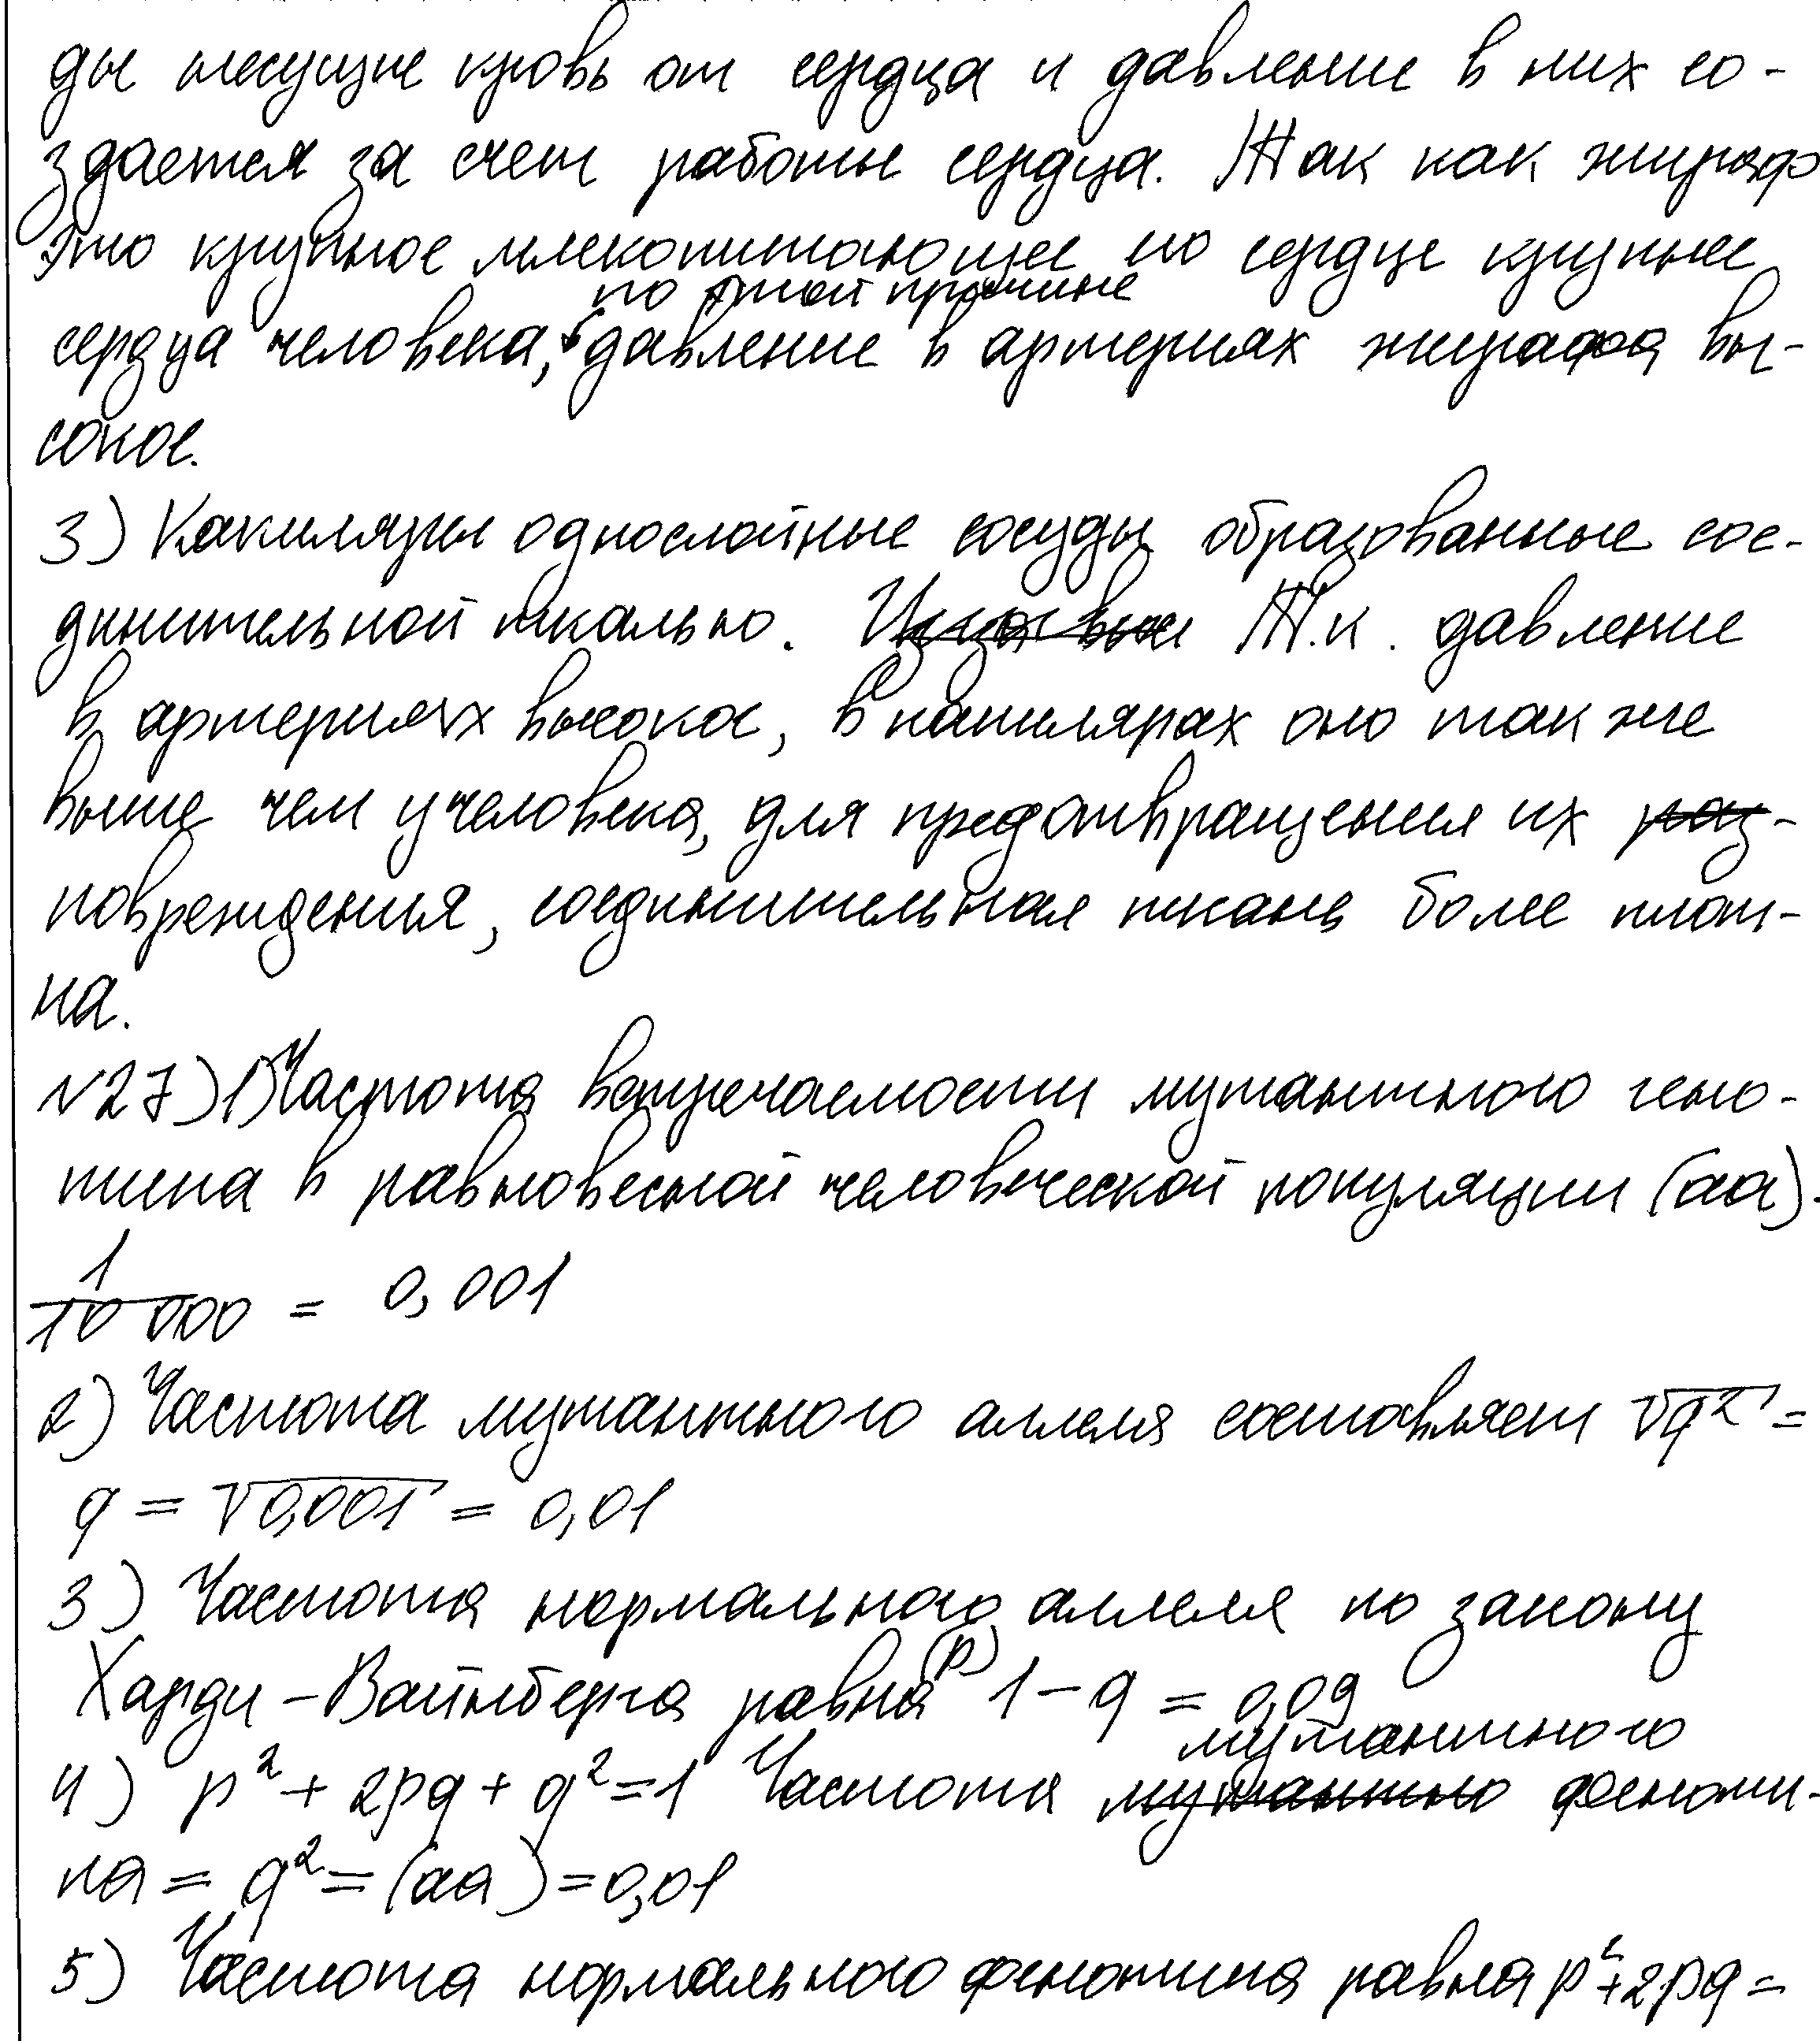 ды несущие кровь от сердца и давление в них со-
здается за счет работы сердца. Так как жираф
это крупное млекопитающее но сердце крупнее
по этой причине
сердца человека, давление в артериях жирафа вы-
сокое.
3) Капиляры однослойные сосуды образованные сое-
динительной тканью. Т.к. давление
в артериях высокое, в капилярах оно так же
выше чем у человека, для предотвращения их
повреждения, соединительная ткань более плот-
на.
№27) 1) Частота встречаемости мутантного гено-
типа в равновесной человеческой популяции (аа).
1
10 000 = 0,001
2) Частота мутантного аллеля составляет √q² =
q = √0,001 = 0,01
3) Частота нормального аллеля по закону
Харди - Вайнберга равна (p) 1 - q = 0,09
мутантного
4) p² + 2pq + q² = 1 Частота мутантно феноти-
па = q² = (аа) = 0,01
5) Частота нормального фенотипа равна p² + 2pq =